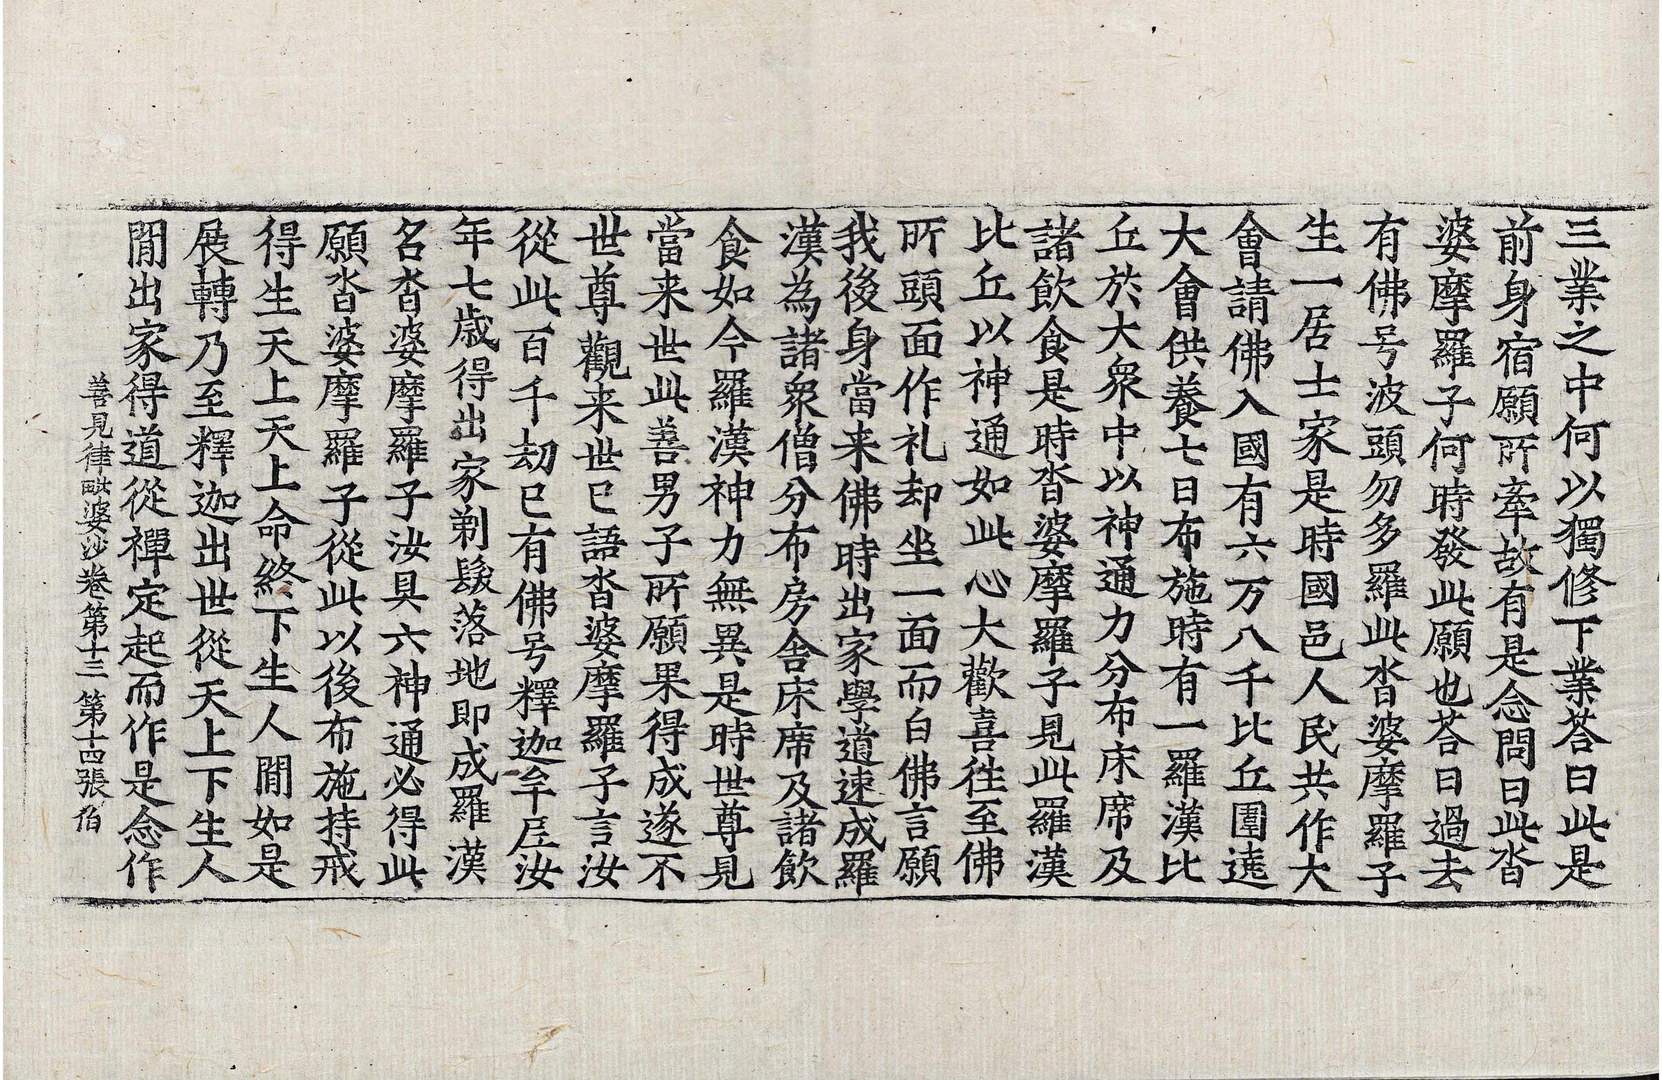 三業之中何以獨修下業荅曰此是
前身宿願所牽故有是念問曰此沓
婆摩羅子何時發此願也荅曰過去
有佛号波頭勿多羅此沓婆摩羅子
生一居士家是時國邑人民共作大
會請佛入國有六万八千比丘圍遶
大會供養七日布施時有一羅漢比
丘於大衆中以神通力分布床席及
諸飲食是時沓婆摩羅子見此羅漢
比丘以神通如此心大歡喜往至佛
所頭面作礼却坐一面而白佛言願
我後身當来佛時出家學道速成羅
漢為諸衆僧分布房舎床席及諸飲
食如今羅漢神力無異是時世尊見
當来世此善男子所願果得成遂不
世尊觀来世已語沓婆摩羅子言汝
從此百千劫已有佛号釋迦牟𡰱汝
年七歲得出家剃髮落地即成羅漢
名沓婆摩羅子汝具六神通必得此
願沓婆摩羅子從此以後布施持戒
得生天上天上命終下生人閒如是
展轉乃至釋迦出世從天上下生人
閒出家得道從禪定起而作是念作
善見律毗婆沙卷第十三 第十四張 伯